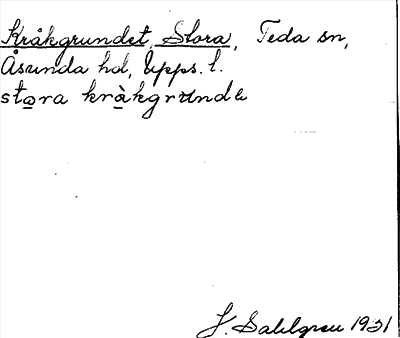 Kråkgrundet, Stora, Teda sn,
Åsunda hd, Upps. l.
stora kråkgrunde
J. Sahlgren 1931